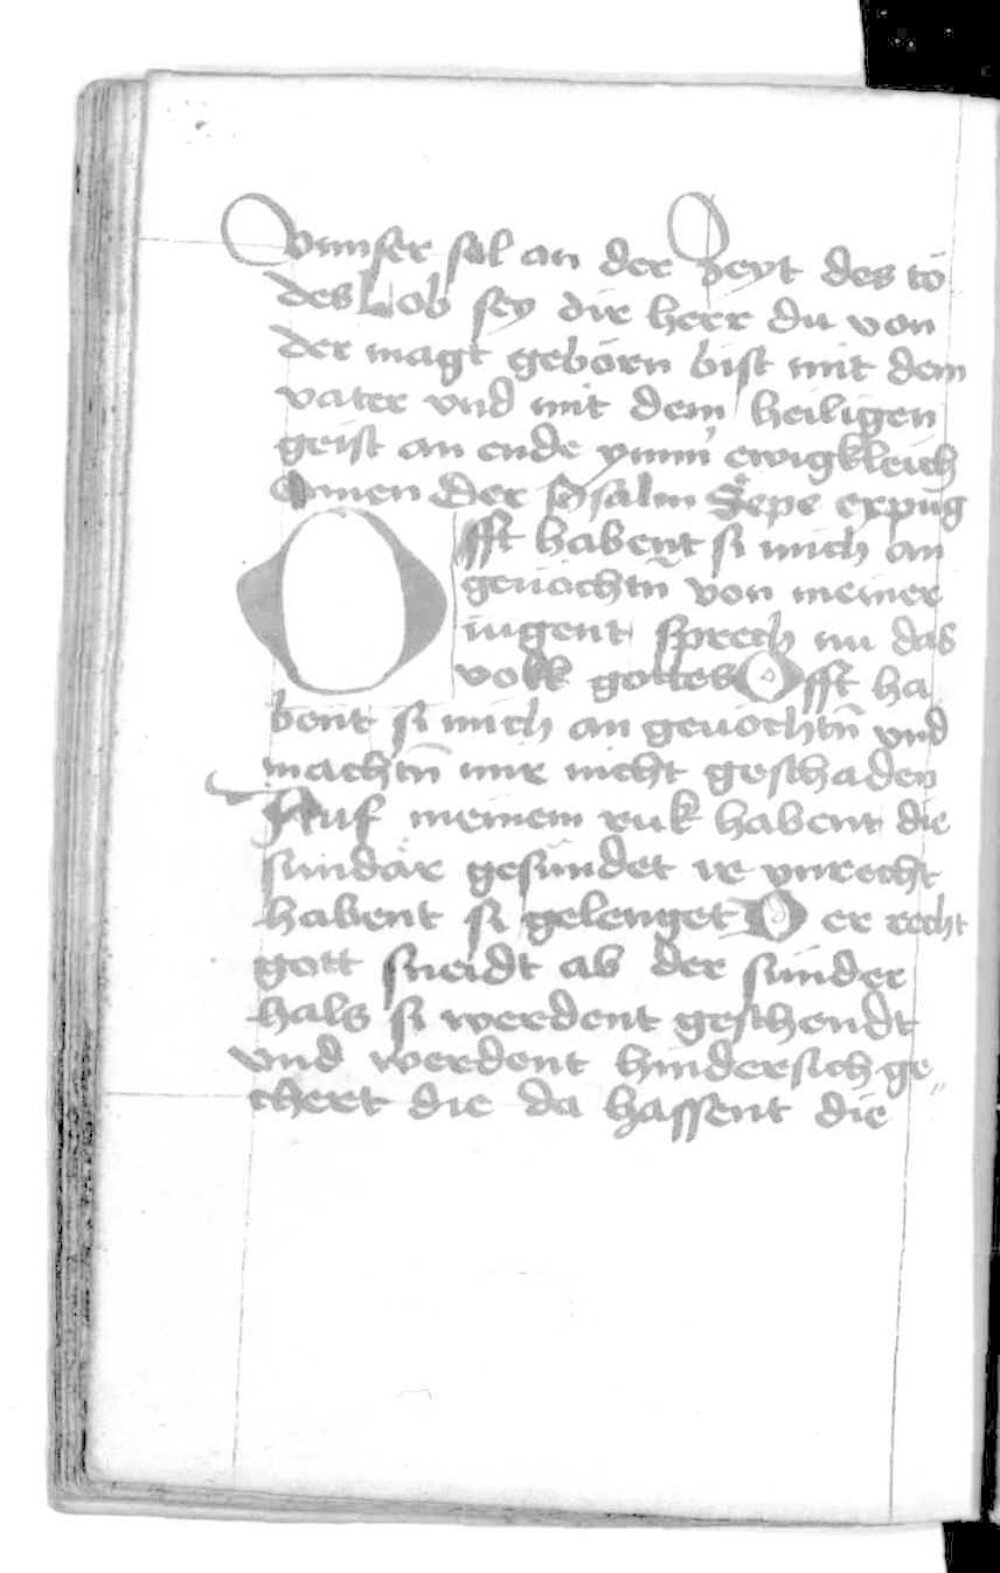 vnnser sel an der zeyt des to
des Lob sey dir herr du von
der magt geborn bist mit dem
vater vnd mit dem heiligen
geist an ende ymm̄ ewigkleich
Amen Der psalm Sepe expug
Offt habent si mich an
geuochtn̄ von meiner
iugent sprech nu das
volk gottes Offt ha
bent si mich an geuochtn̄ vnd
machtn̄ mir nicht geschaden
Auf meinem ruk habent die
sundär gesundet ir vnrecht
habent si gelenget D er recht
gott sneidt ab der sunder
hals si werdent geschendt
vnd werdent hindersich ge
chert die da hassent die